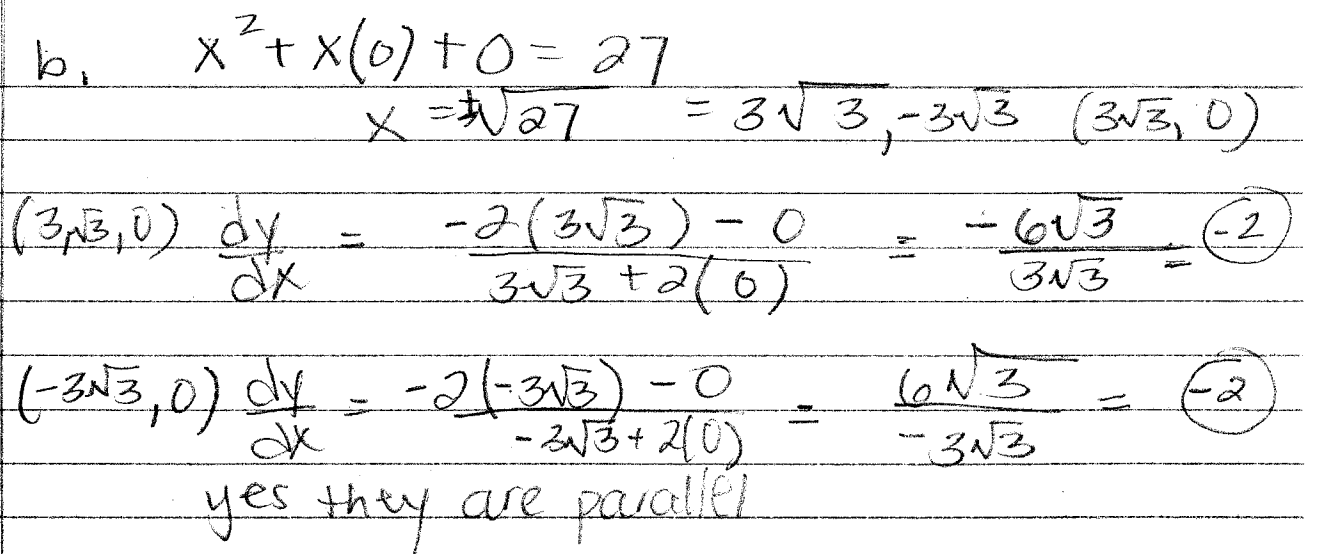 b. x² + x(0) + 0 = 27
x = ±√27 = 3√3, -3√3 (3√3, 0)
(3√3, 0) dy/dx = (-2(3√3) - 0)/(3√3 + 2(0)) = -6√3/3√3 = -2
(-3√3, 0) dy/dx = (-2(-3√3) - 0)/(-3√3 + 2(0)) = 6√3/-3√3 = -2
yes they are parallel